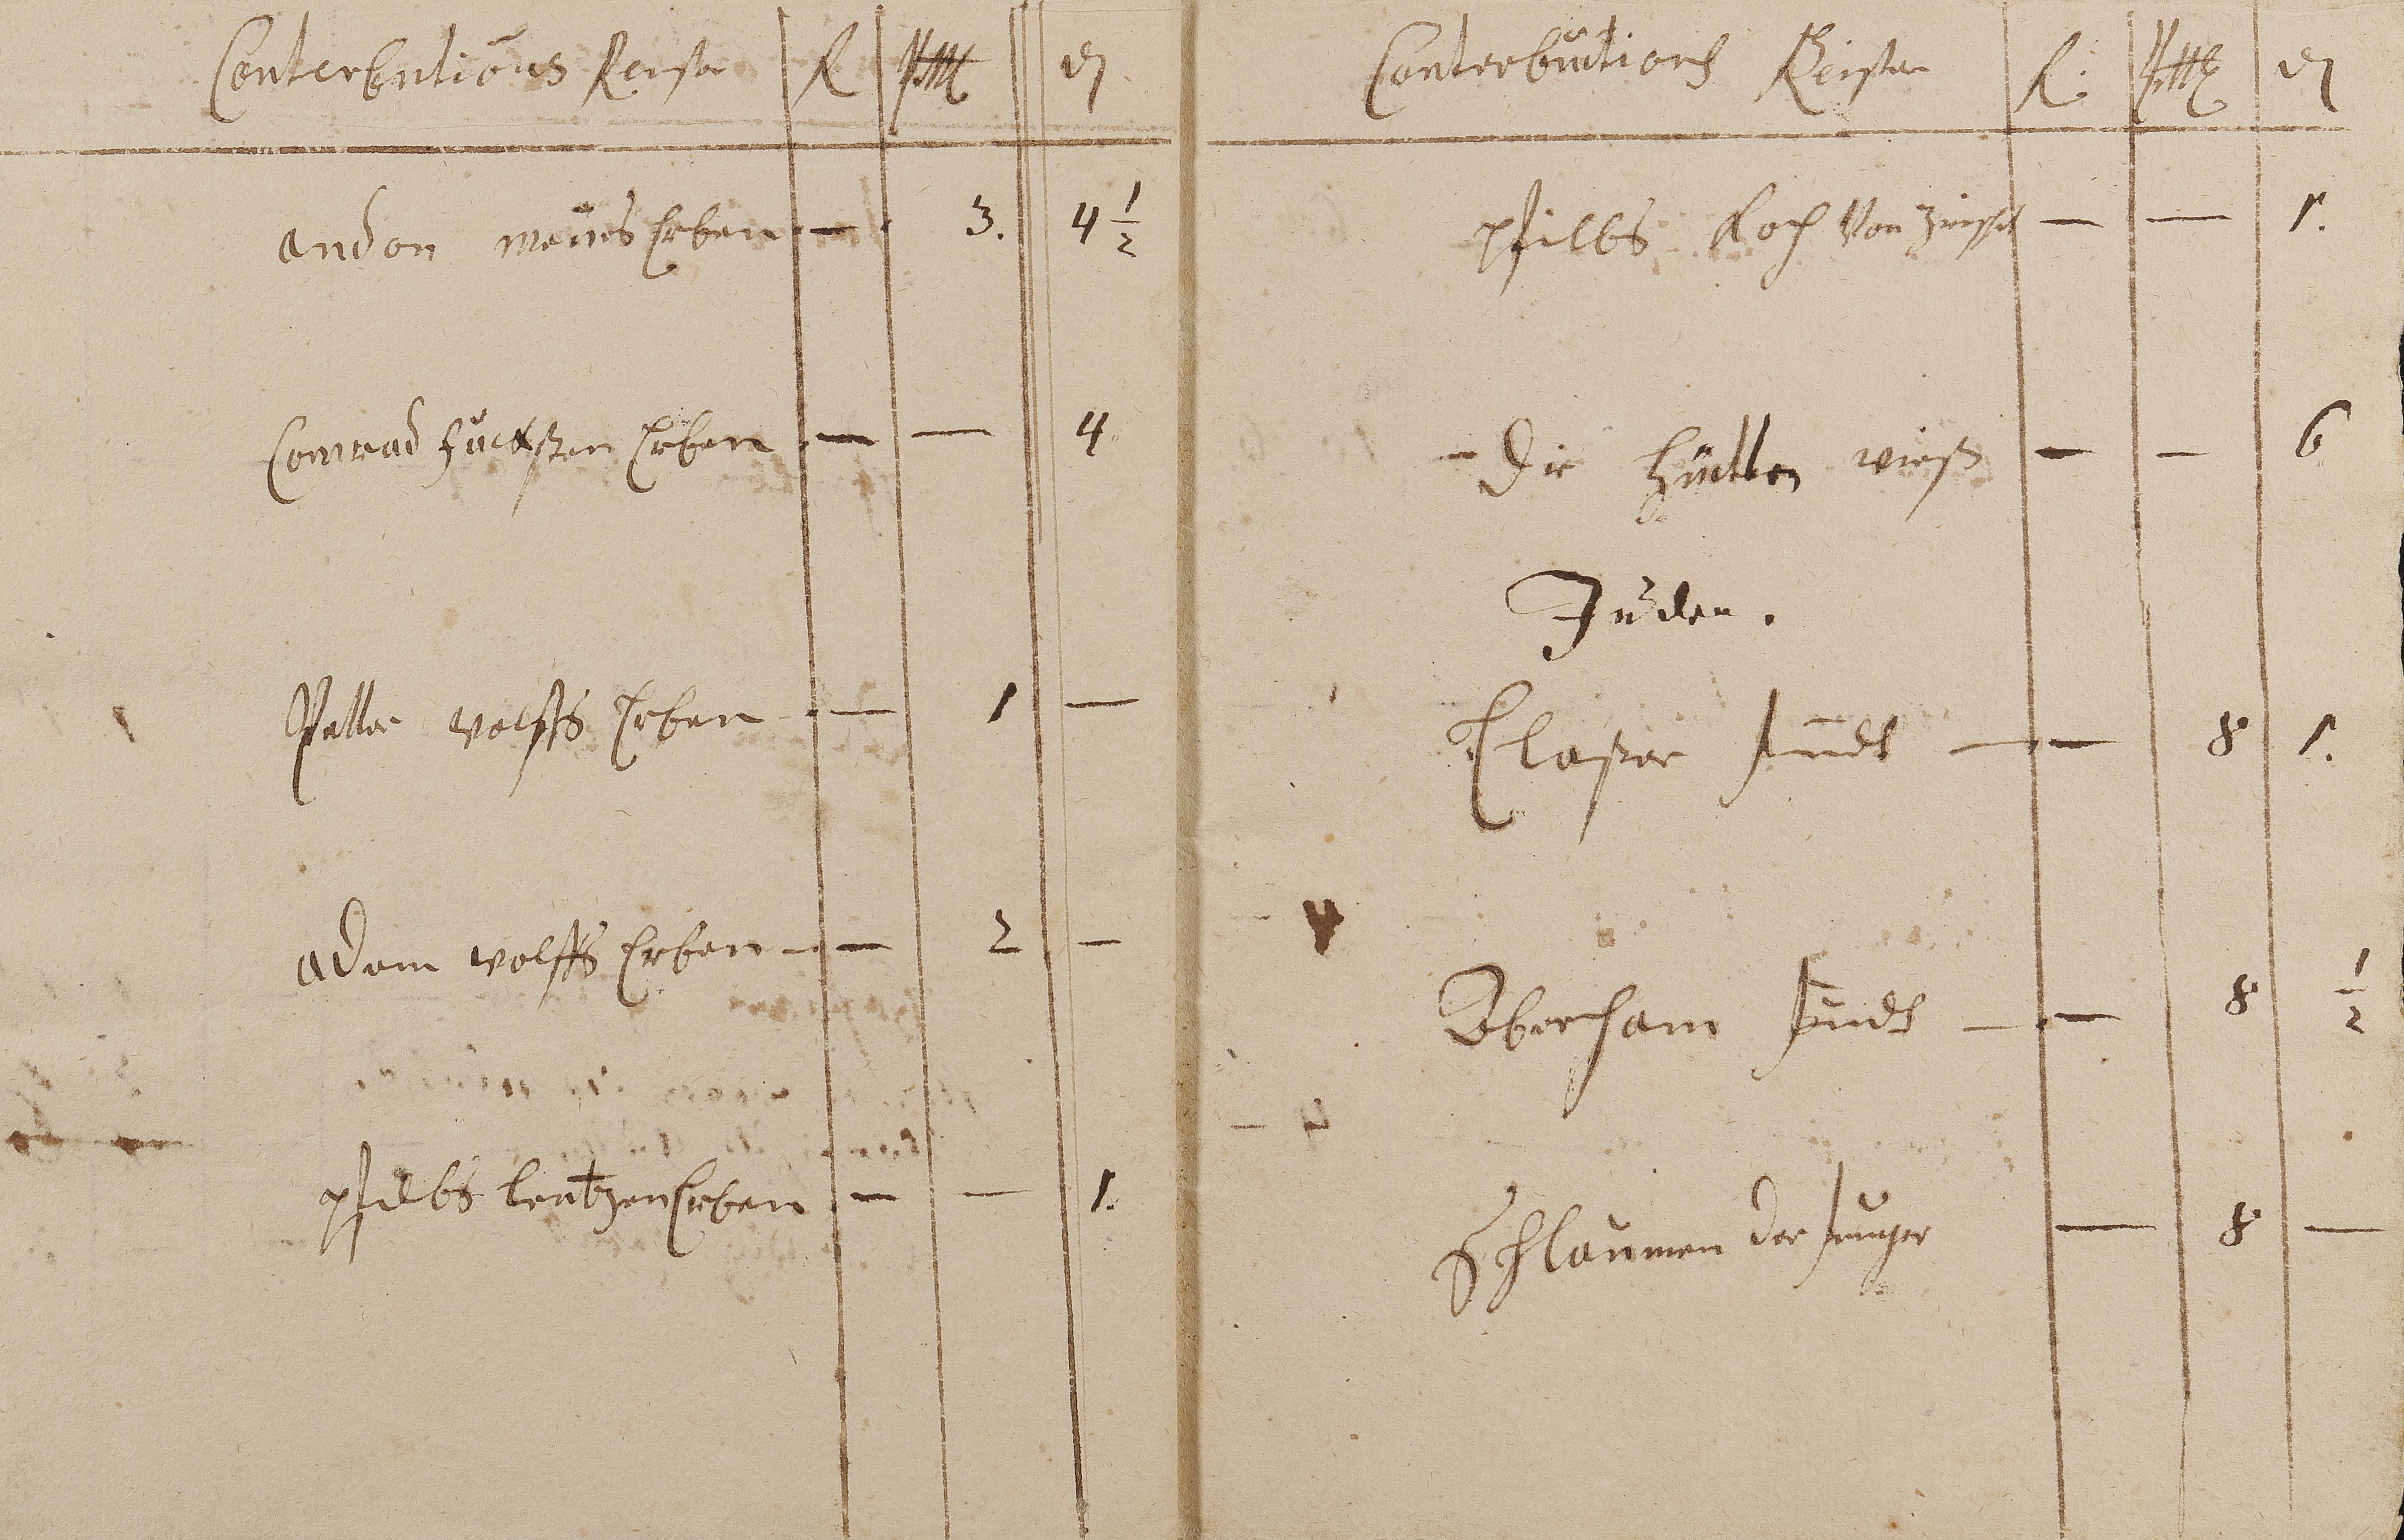 Conterbutions Reister R Pfttl ₰
andon Meües Erben — 3. 4 1/2
Conrad Füchssen Erben — — 4
Petter wolffs Erben — 1 —
adam wolffs Erben — 2 —
philbs lentzen Erben — — 1.
Conterbutions Reister R: ₰
philbs Koch Von — — 1.
Die Hütten wiess — — 6
Juden.
Elasser Judt — 8 1.
Aberham Judt — 8 1/2
Schlaumen der Junger — 8 —